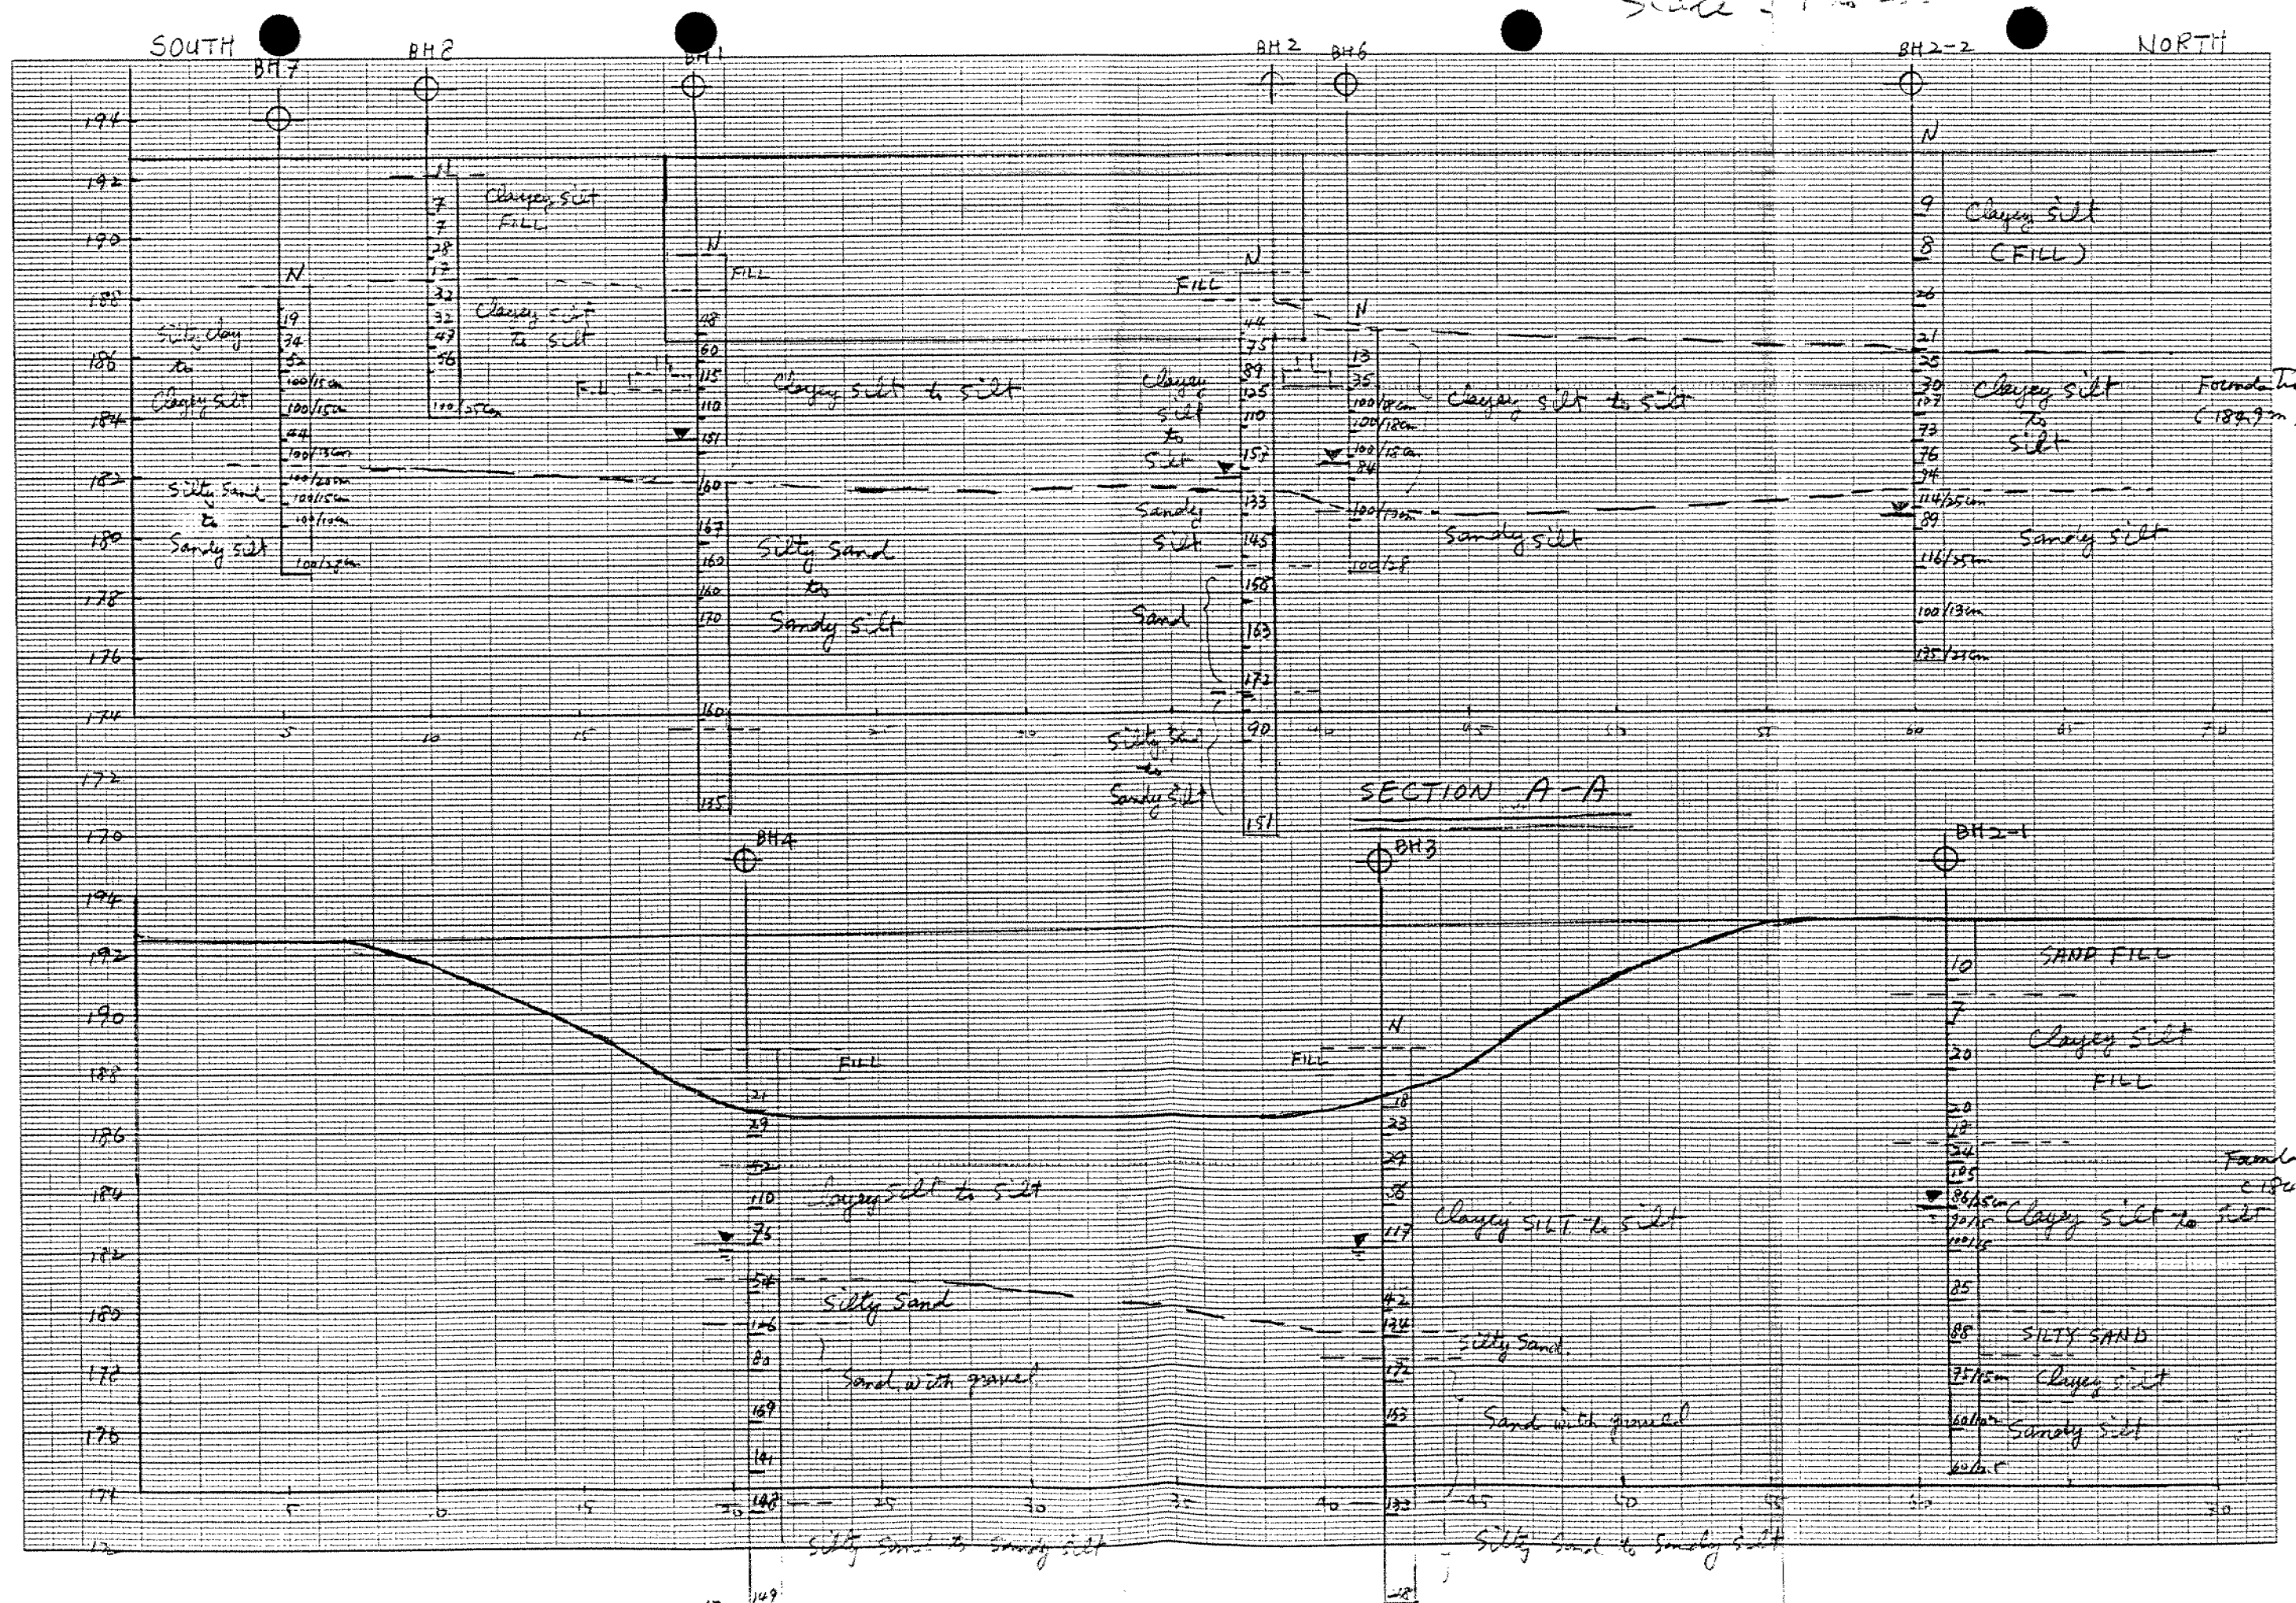 SOUTH
NORTH
BH7
BH8
BH1
BH2
BH6
BH2-2
194
192
190
188
186
184
182
180
178
176
174
172
170
N
19
34
52
100/15cm
100/15cm
44
100/13cm
100/20cm
100/15cm
100/10cm
Silty clay
to
Clayey silt
Silty Sand
to
Sandy silt
N
7
7
28
17
32
32
47
56
100/25cm
Clayey silt
FILL
Clayey silt
to silt
N
FILL
48
60
115
110
151
160
167
160
160
170
160
135
Clayey silt to silt
Silty Sand
to
Sandy silt
N
FILL
44
75
89
125
110
157
133
145
158
163
172
90
151
Clayey
silt
to
silt
Sandy
silt
Sand
Silty Sand
to
Sandy silt
N
13
35
100/18cm
100/18cm
100/18cm
84
100/28
Clayey silt to silt
Sandy silt
N
9
8
26
21
28
30
107
73
76
94
114/25cm
89
116/25cm
100/13cm
135/23cm
Clayey silt
(FILL)
Clayey silt
to
silt
Sandy silt
5
10
15
40
45
50
55
60
65
70
SECTION A-A
BH4
BH3
BH2-1
194
192
190
188
186
184
182
180
178
176
174
FILL
21
29
42
110
75
54
126
80
169
141
148
149
Clayey silt to silt
Silty Sand
Sand with gravel
Silty Sand to Sandy silt
N
FILL
18
23
29
56
117
42
134
172
153
133
Clayey SILT to silt
Silty Sand
Sand with gravel
Silty Sand to Sandy silt
10
7
20
20
18
24
105
86/25cm
90/15
100/15
85
88
75/15cm
SAND FILL
Clayey silt
FILL
Clayey silt to silt
SILTY SAND
Clayey silt
Sandy silt
5
15
20
25
30
35
40
45
50
55
60
70